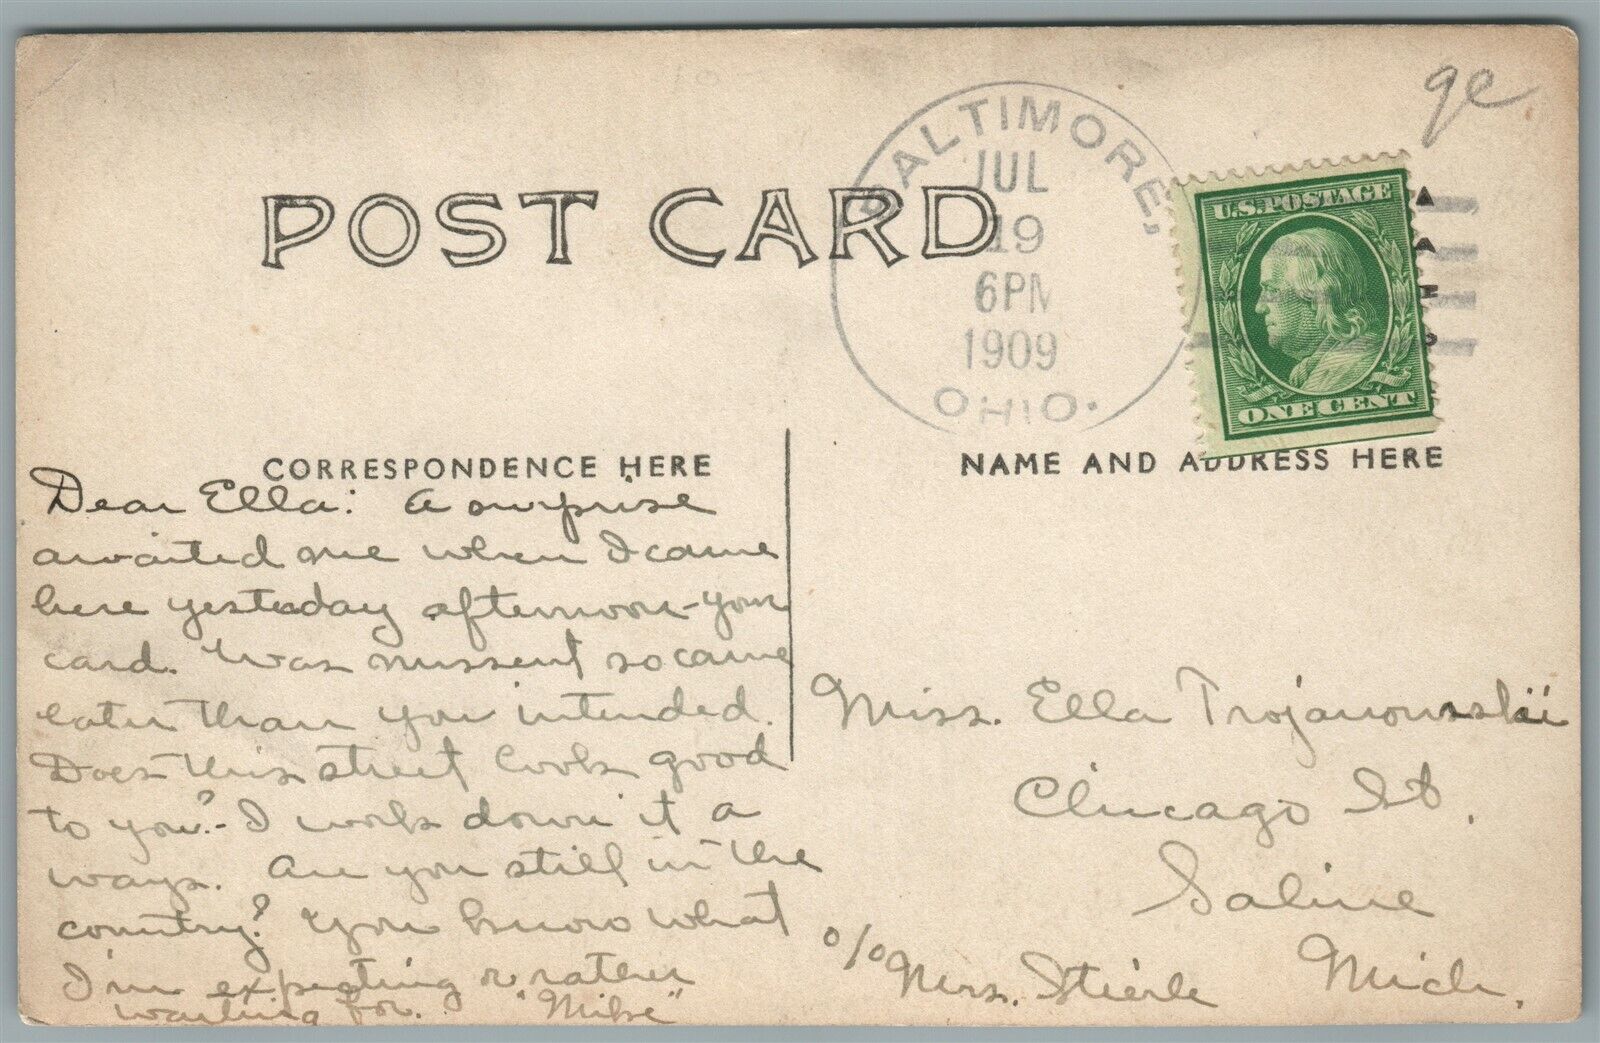 ge
BALTIMORE,
JUL
19
6PM
1909
OHIO.
U.S.POSTAGE
ONE CENT
POST CARD
CORRESPONDENCE HERE
NAME AND ADDRESS HERE
Dear Ella: A surprise
awaited me when I came
here yesterday afternoon-your
card. Was missent so came
later than you intended.
Does this street look good
to you?- I work down it a
ways. Are you still in the
country? You know what
I'm expecting or rather
waiting for. "Mike"
Miss. Ella Trojanowskii
Chicago St.
Saline
Mich.
c/o Mrs. Stierle